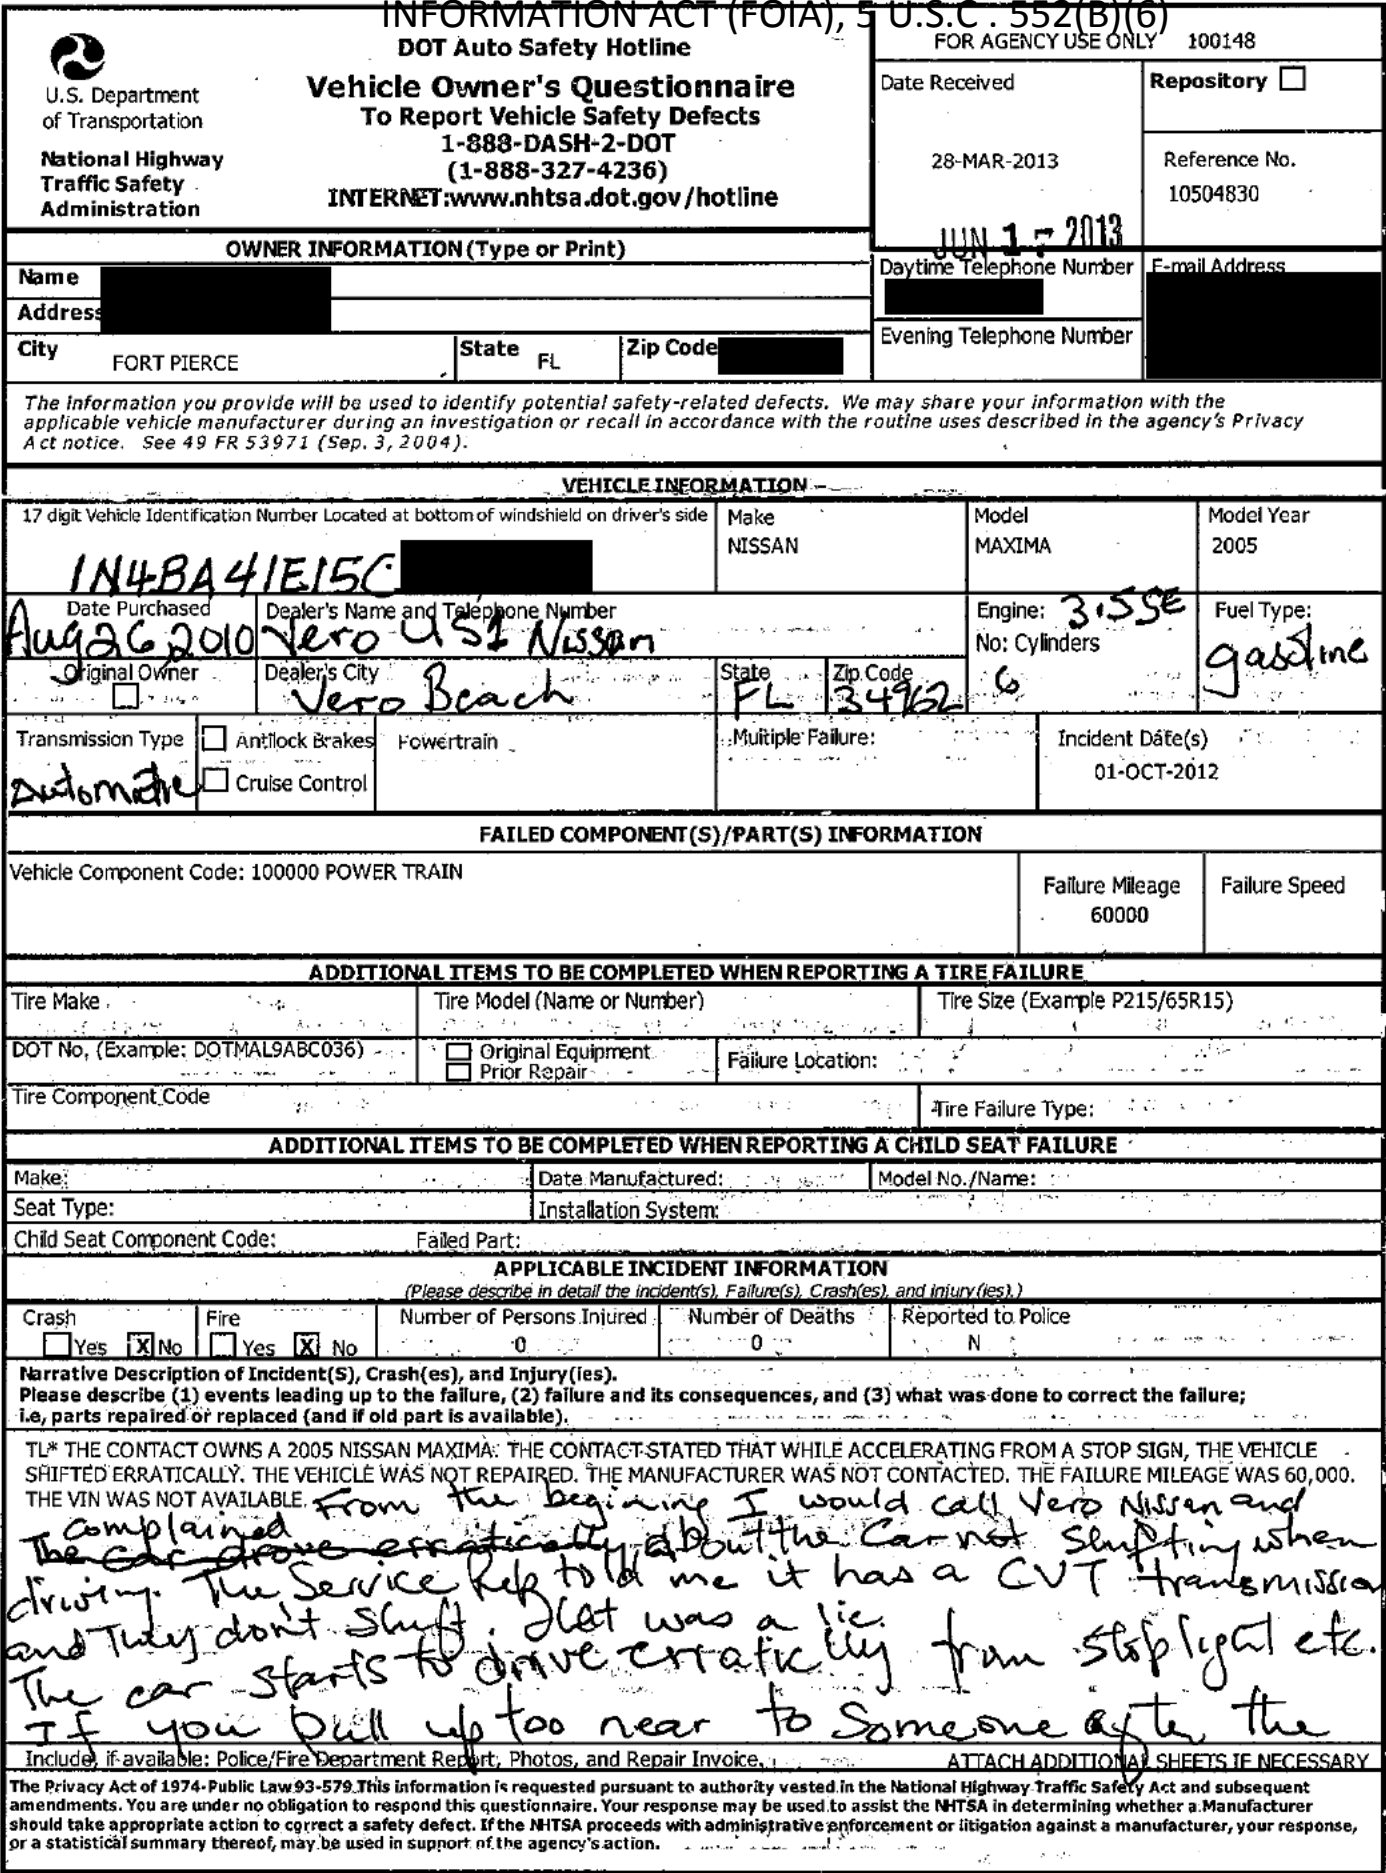 INFORMATION ACT (FOIA), 5 U.S.C . 552(B)(6)
U.S. Department
of Transportation
National Highway
Traffic Safety
Administration
DOT Auto Safety Hotline
Vehicle Owner's Questionnaire
To Report Vehicle Safety Defects
1-888-DASH-2-DOT
(1-888-327-4236)
INTERNET:www.nhtsa.dot.gov/hotline
FOR AGENCY USE ONLY 100148
Date Received
28-MAR-2013
JUN 1 - 2013
Repository
Reference No.
10504830
OWNER INFORMATION (Type or Print)
Name
Address
City FORT PIERCE State FL Zip Code
Daytime Telephone Number E-mail Address
Evening Telephone Number
The information you provide will be used to identify potential safety-related defects. We may share your information with the
applicable vehicle manufacturer during an investigation or recall in accordance with the routine uses described in the agency's Privacy
Act notice. See 49 FR 53971 (Sep. 3, 2004).
VEHICLE INFORMATION
17 digit Vehicle Identification Number Located at bottom of windshield on driver's side
1N4BA41E15C
Make
NISSAN
Model
MAXIMA
Model Year
2005
Date Purchased
Aug 26 2010
Dealer's Name and Telephone Number
Vero US1 Nissan
Engine: 3.5SE
No: Cylinders
6
Fuel Type:
gasoline
Original Owner
Dealer's City
Vero Beach
State
FL
Zip Code
34962
Transmission Type
Automatic
Antilock Brakes
Cruise Control
Powertrain
Multiple Failure:
Incident Date(s)
01-OCT-2012
FAILED COMPONENT(S)/PART(S) INFORMATION
Vehicle Component Code: 100000 POWER TRAIN
Failure Mileage
60000
Failure Speed
ADDITIONAL ITEMS TO BE COMPLETED WHEN REPORTING A TIRE FAILURE
Tire Make
Tire Model (Name or Number)
Tire Size (Example P215/65R15)
DOT No. (Example: DOTMAL9ABC036)
Original Equipment
Prior Repair
Failure Location:
Tire Component Code
Tire Failure Type:
ADDITIONAL ITEMS TO BE COMPLETED WHEN REPORTING A CHILD SEAT FAILURE
Make: Date Manufactured: Model No./Name:
Seat Type: Installation System:
Child Seat Component Code: Failed Part:
APPLICABLE INCIDENT INFORMATION
(Please describe in detail the incident(s), Failure(s), Crash(es), and injury(ies).)
Crash
Yes X No
Fire
Yes X No
Number of Persons Injured
0
Number of Deaths
0
Reported to Police
N
Narrative Description of Incident(S), Crash(es), and Injury(ies).
Please describe (1) events leading up to the failure, (2) failure and its consequences, and (3) what was done to correct the failure;
i.e, parts repaired or replaced (and if old part is available).
TL* THE CONTACT OWNS A 2005 NISSAN MAXIMA. THE CONTACT STATED THAT WHILE ACCELERATING FROM A STOP SIGN, THE VEHICLE
SHIFTED ERRATICALLY. THE VEHICLE WAS NOT REPAIRED. THE MANUFACTURER WAS NOT CONTACTED. THE FAILURE MILEAGE WAS 60,000.
THE VIN WAS NOT AVAILABLE. From the begining I would call Vero Nissan and
complained
The car drove erratically about the Car not shifting when
driving. The Service Rep told me it has a CVT transmission
and They don't shift. That was a lie.
The car starts to drive erratically from stoplight etc.
If you pull up too near to Someone after the
Include, if available: Police/Fire Department Report, Photos, and Repair Invoice. ATTACH ADDITIONAL SHEETS IF NECESSARY
The Privacy Act of 1974-Public Law 93-579 This information is requested pursuant to authority vested in the National Highway Traffic Safety Act and subsequent
amendments. You are under no obligation to respond this questionnaire. Your response may be used to assist the NHTSA in determining whether a Manufacturer
should take appropriate action to correct a safety defect. If the NHTSA proceeds with administrative enforcement or litigation against a manufacturer, your response,
or a statistical summary thereof, may be used in support of the agency's action.